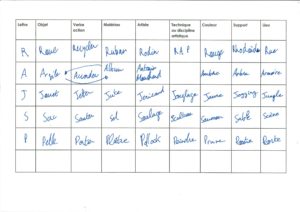 Lettre Objet Verbe action Matériau Artiste Technique ou discipline artistique Couleur Support Lieu
R Roue Recycler Ruban Rodin RAP Rouge Rue
A Argile Accorder Antonio Ambre Arbre Armoire
J Jouet Jeter Jute Jonglage Jaune Jogging Jungle
S Sac Sauter Sol Soulage Sculpture Saumon Sable Scène
P Pelle Porter Plâtre Pollock Poudre Prune